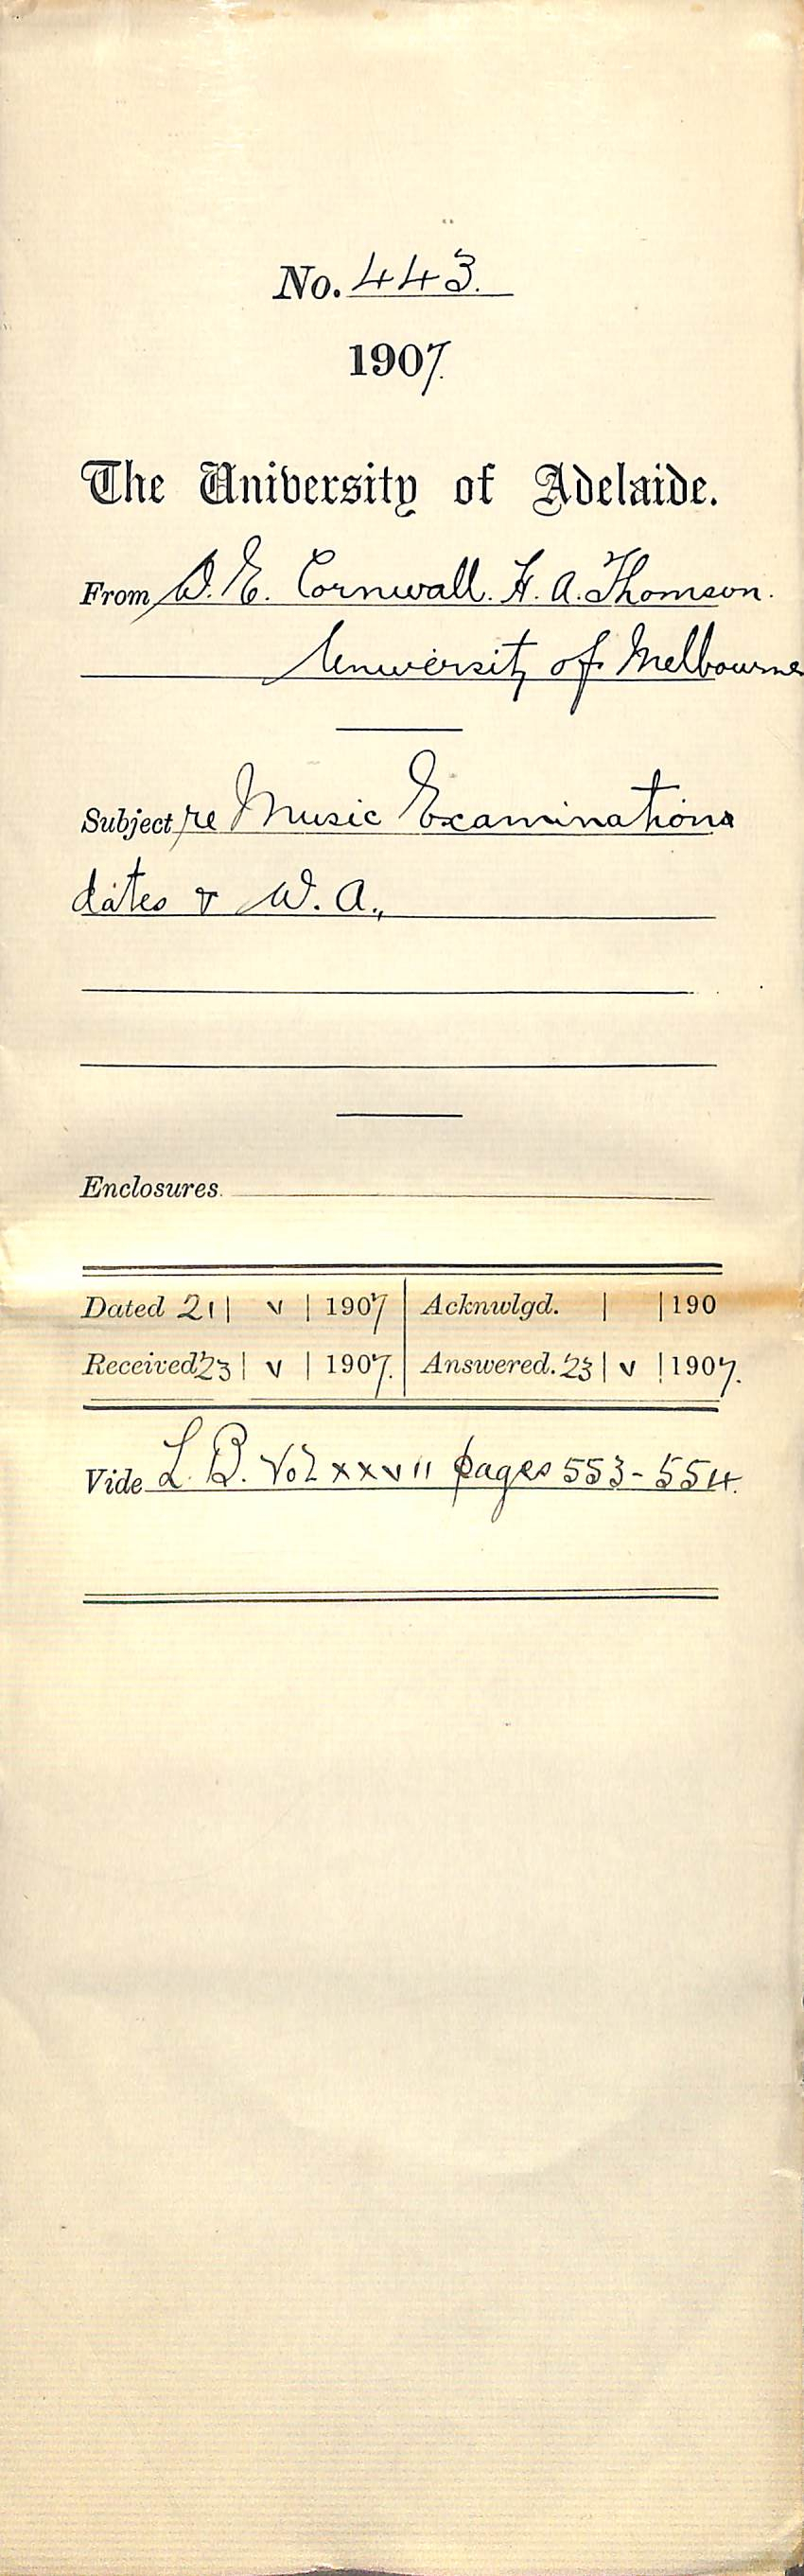 No. 443.
1907.
The University of Adelaide.
From D. E. Cornwall. H. A. Thomson.
University of Melbourne
Subject re Music Examinations
dates & W. A.,
Enclosures.
Dated 21 | V | 1907 | Acknwlgd. | | 190
Received 23 | V | 1907. | Answered. 23 | V | 1907.
Vide L. B. Vol xxvii pages 553-554.